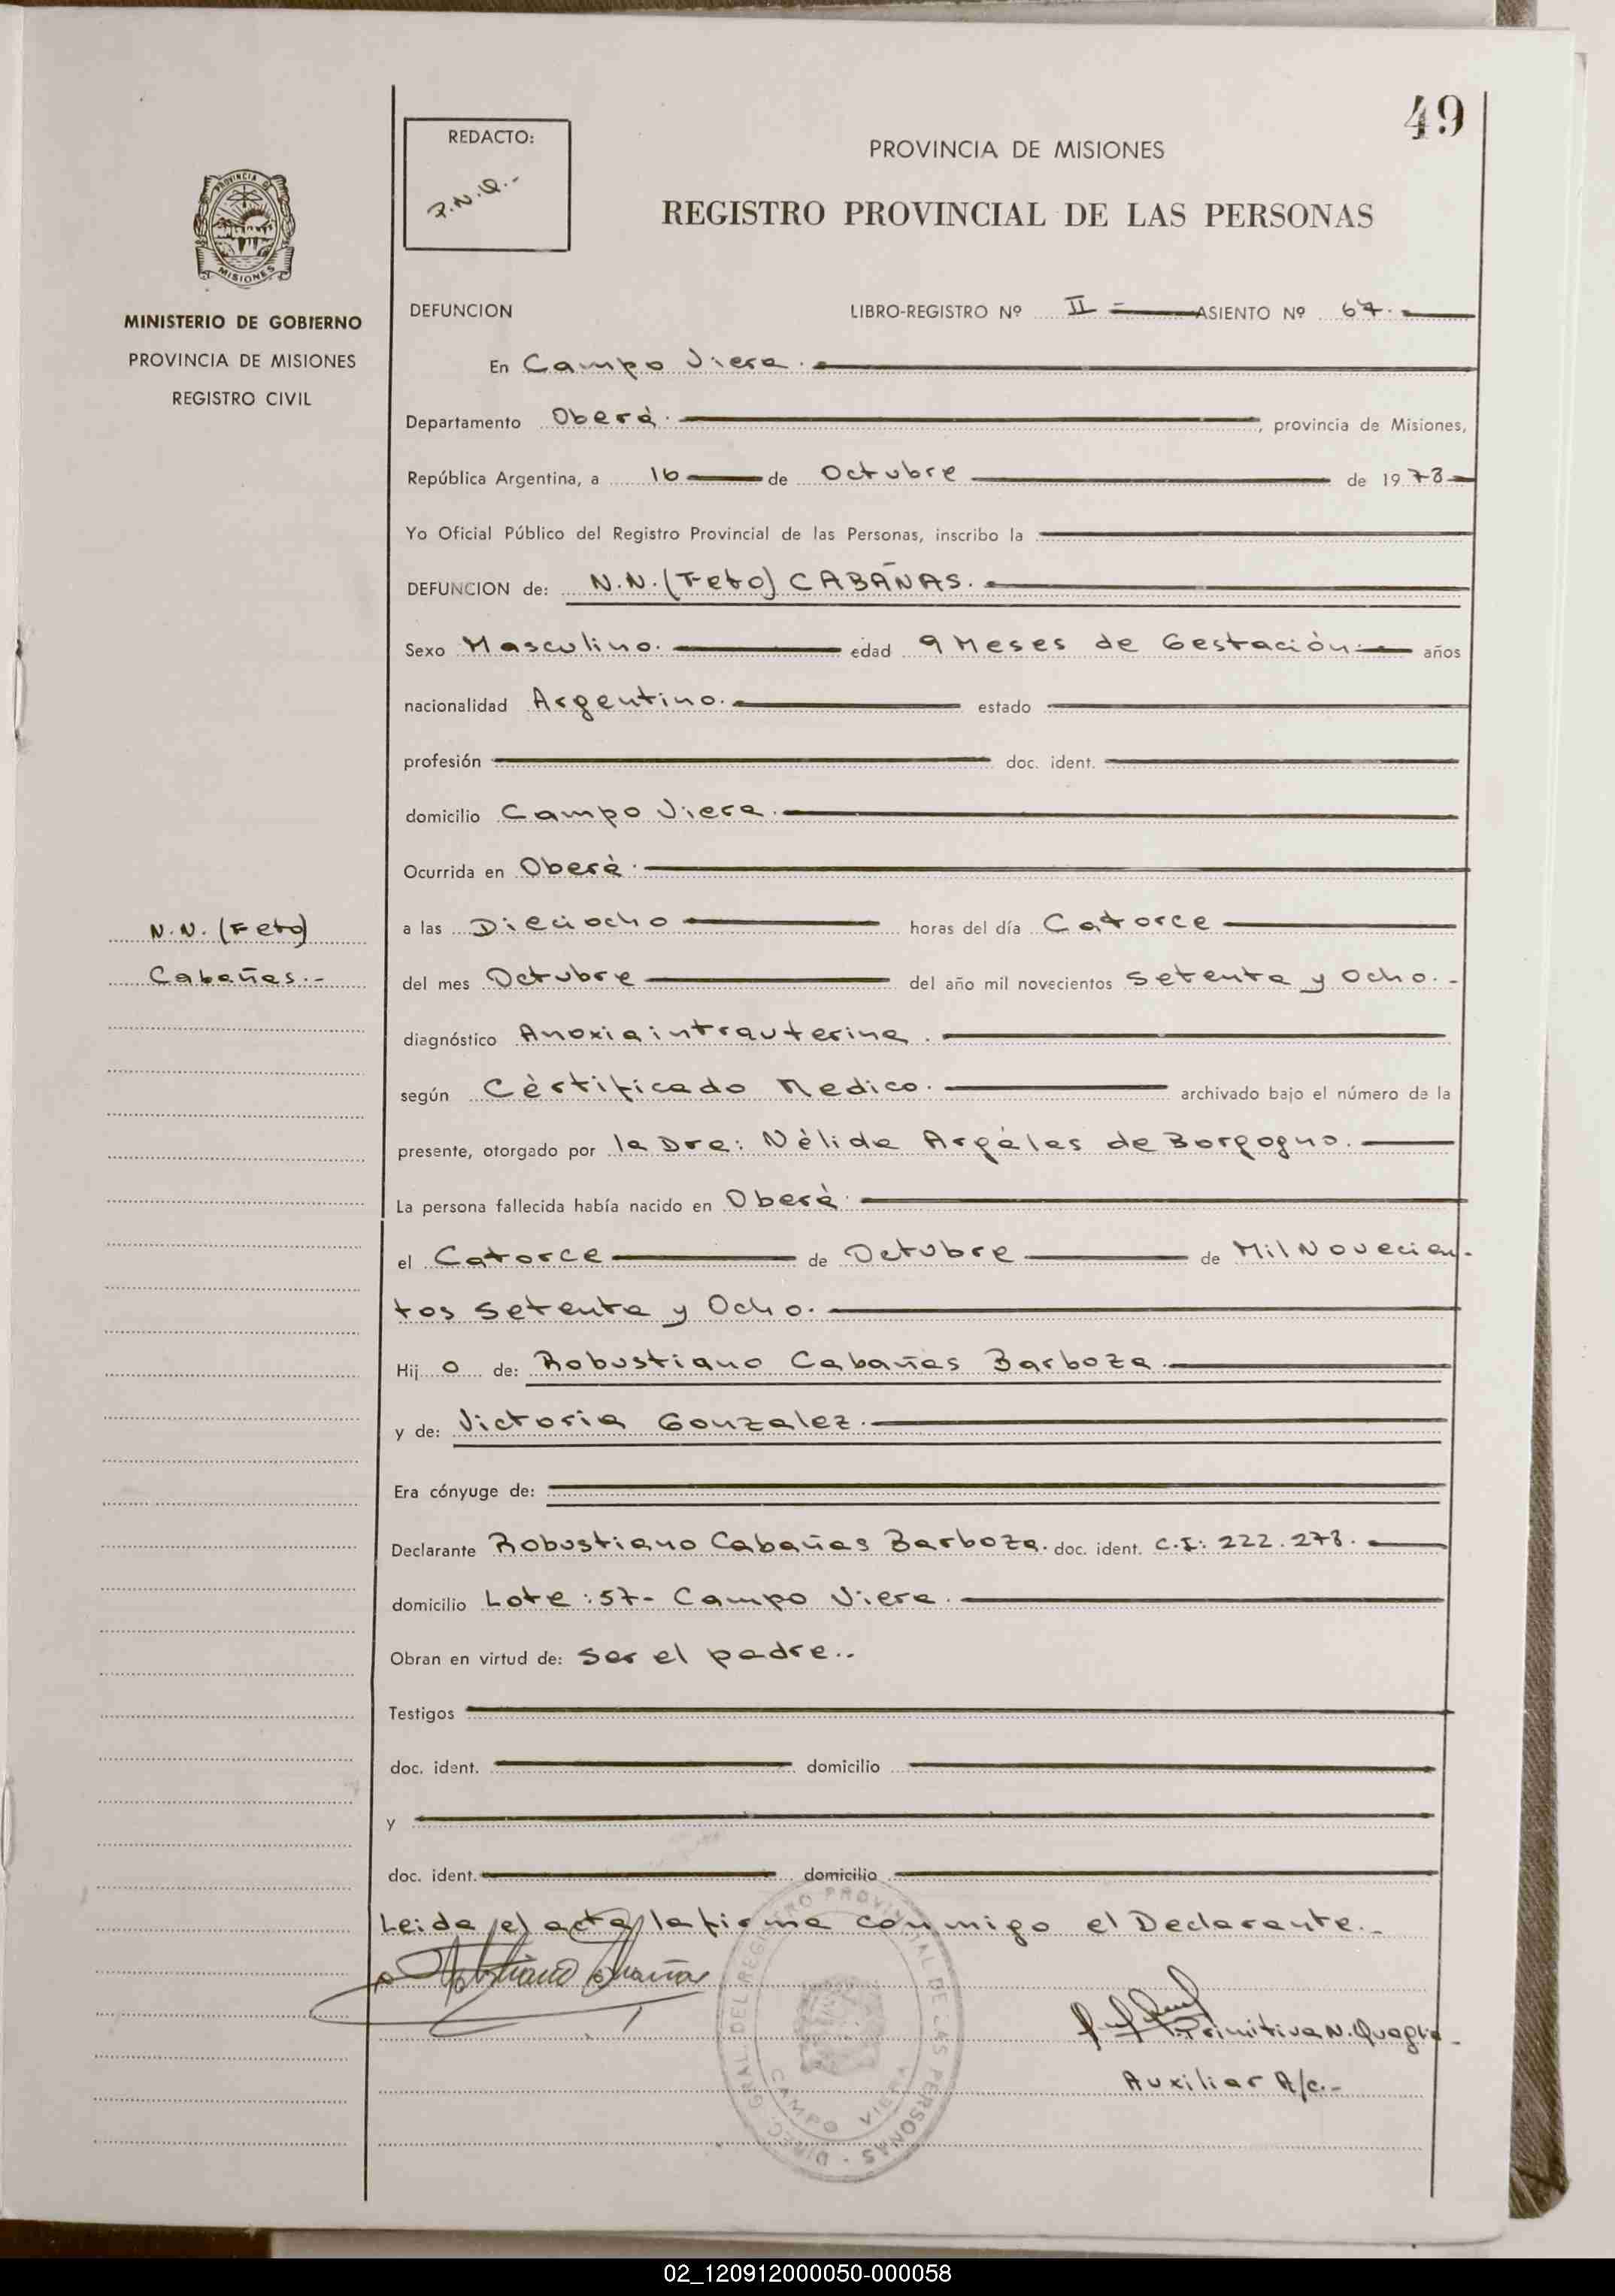 49
REDACTO:
P.N.Q.-
PROVINCIA DE MISIONES
REGISTRO PROVINCIAL DE LAS PERSONAS
MINISTERIO DE GOBIERNO
PROVINCIA DE MISIONES
REGISTRO CIVIL
DEFUNCION LIBRO-REGISTRO Nº II = ASIENTO Nº 67.
En Campo Viera.
Departamento Oberá. , provincia de Misiones,
República Argentina, a 16 de Octubre de 1978
Yo Oficial Público del Registro Provincial de las Personas, inscribo la
DEFUNCION de: N.N. (Feto) CABAÑAS.
Sexo Masculino. edad 9 Meses de Gestación años
nacionalidad Argentino. estado
profesión doc. ident.
domicilio Campo Viera.
Ocurrida en Oberá.
N.N. (Feto)
Cabañas.-
a las Dieciocho horas del día Catorce
del mes Octubre del año mil novecientos setenta y Ocho.-
diagnóstico Anoxia intrauterina.
según Cértificado Medico. archivado bajo el número de la
presente, otorgado por la Dra: Nélida Argáles de Borgogno.
La persona fallecida había nacido en Oberá.
el Catorce de Octubre de Mil Novecien-
tos setenta y Ocho.
Hij o de: Robustiano Cabañas Barboza.
y de: Victoria Gonzalez.
Era cónyuge de:
Declarante Robustiano Cabañas Barboza. doc. ident. C.I: 222.278.
domicilio Lote:57- Campo Viera.
Obran en virtud de: ser el padre..
Testigos
doc. ident. domicilio
y
doc. ident. domicilio
Leida el acta la firma conmigo el Declarante.-
Robustiano Cabañas
Primitiva N. Quagl
Auxiliar A/c.-
DIREC. GRAL. DEL REGISTRO PROVINCIAL DE LAS PERSONAS
CAMPO VIERA
02_120912000050-000058